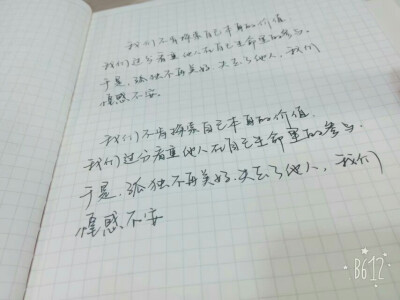 我们不肯探索自己本身的价值,
我们过分看重他人在自己生命里的参与.
于是,孤独不再美好.失去了他人,我们
惶惑不安.
我们不肯探索自己本真的价值,
我们过分看重他人在自己生命里的参与.
于是,孤独不再美好.失去了他人,我们
惶惑不安
B612